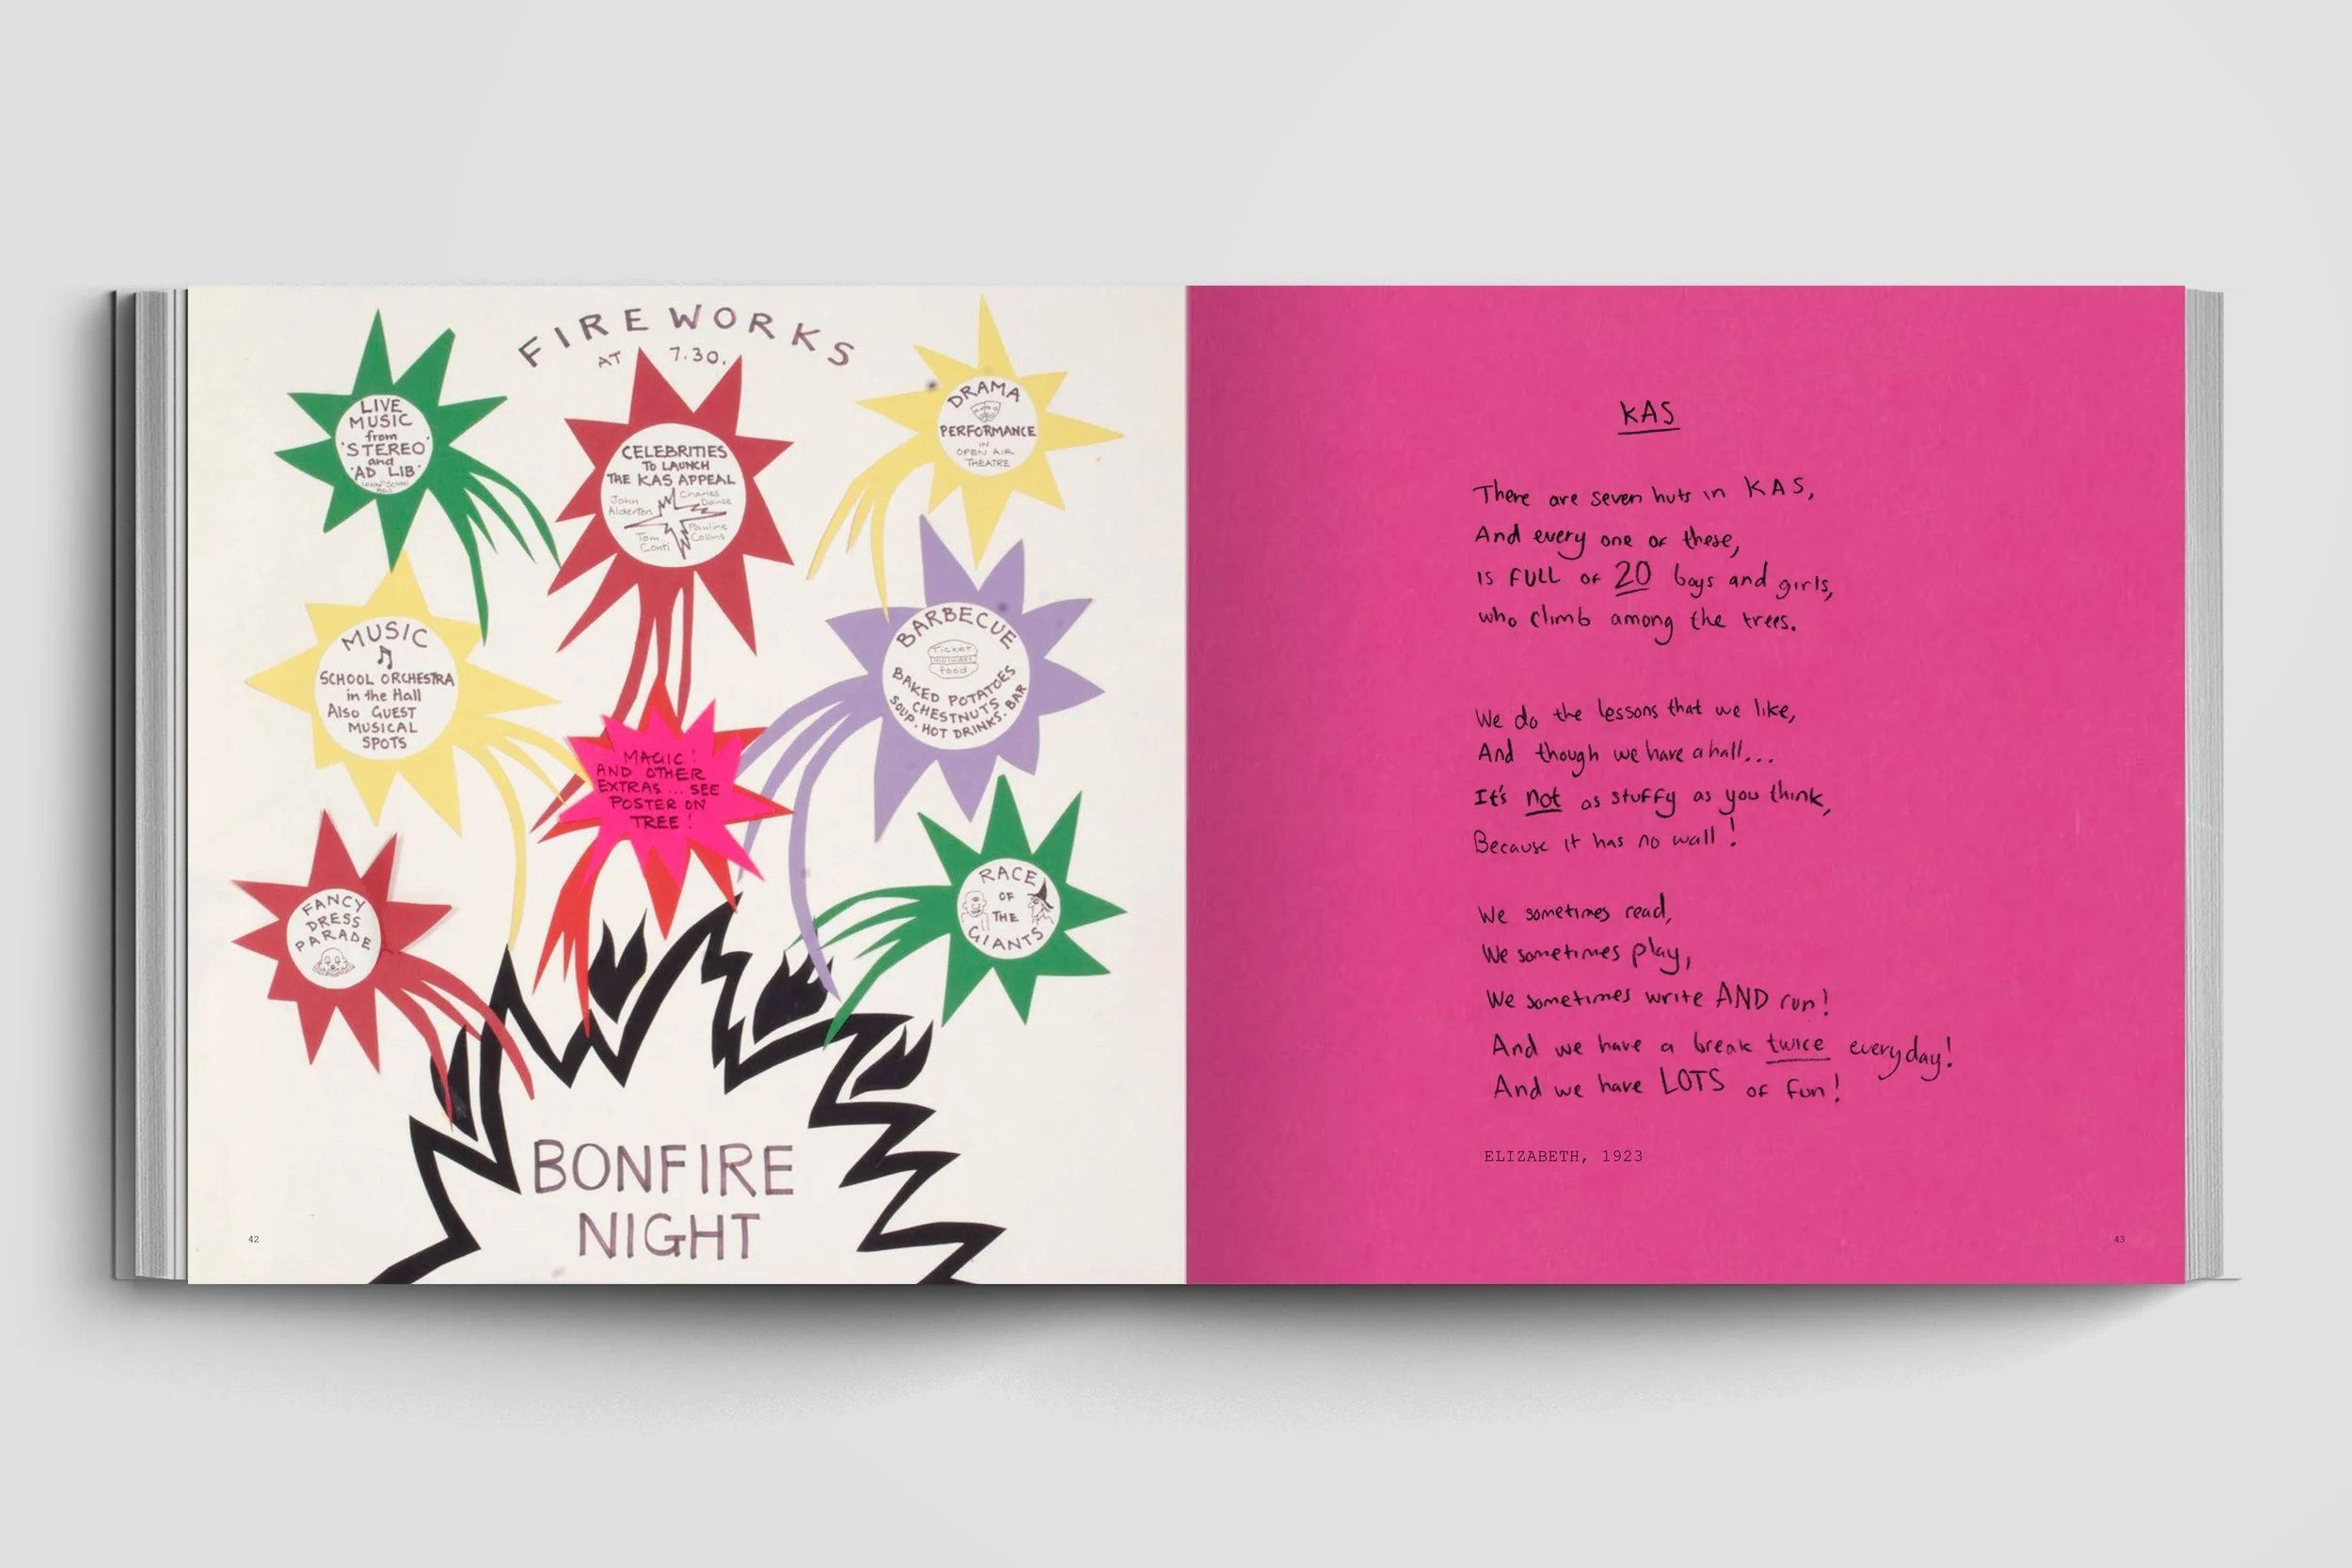 FIREWORKS
AT 7.30.
LIVE
MUSIC
from
'STEREO'
and
'AD LIB'
CELEBRITIES
TO LAUNCH
THE KAS APPEAL
John
Alderton
Charles
Dance
Tom
Conti
Pauline
Collins
DRAMA
PERFORMANCE
IN
OPEN AIR
THEATRE
MUSIC
SCHOOL ORCHESTRA
in the Hall
Also GUEST
MUSICAL
SPOTS
BARBECUE
Ticket
includes
food
BAKED POTATOES
CHESTNUTS
SOUP · HOT DRINKS · BAR
MAGIC!
AND OTHER
EXTRAS ... SEE
POSTER ON
TREE!
FANCY
DRESS
PARADE
RACE
OF
THE
GIANTS
BONFIRE
NIGHT
42
KAS
There are seven huts in KAS,
And every one of these,
is FULL of 20 boys and girls,
who climb among the trees.
We do the lessons that we like,
And though we have a hall...
It's not as stuffy as you think,
Because it has no wall!
We sometimes read,
We sometimes play,
We sometimes write AND run!
And we have a break twice everyday!
And we have LOTS of fun!
ELIZABETH, 1923
43